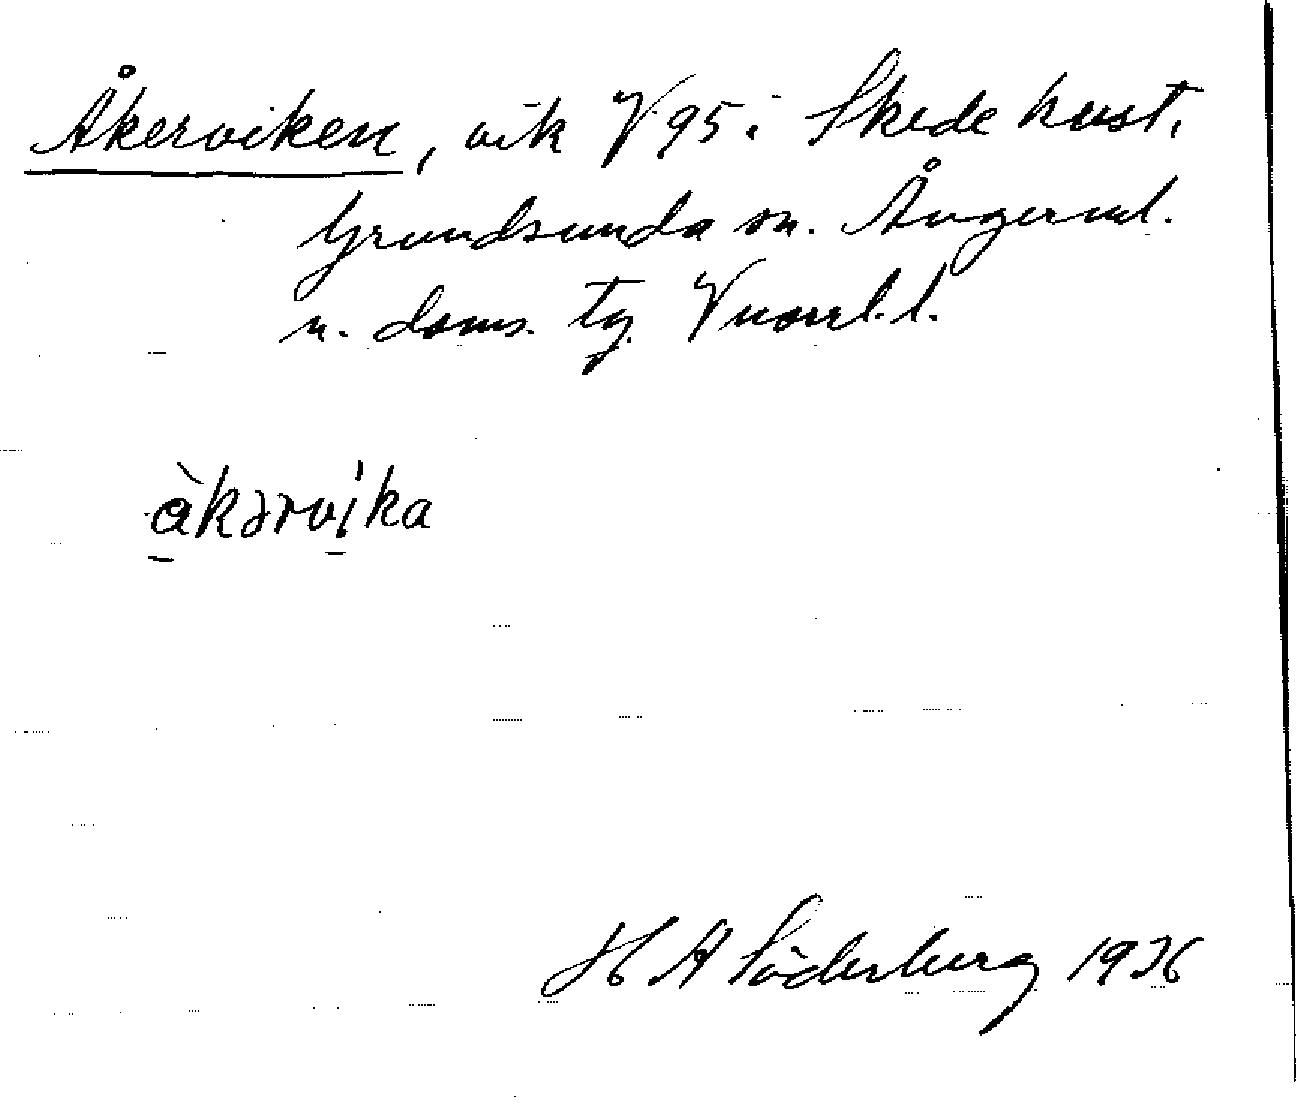 Åkerviken, vik V 95 i Skede hvst.
Grundsunda sn. Ångerml.
n. doms. tg. V norrl. l.
àkərvika
H A Söderberg 1936